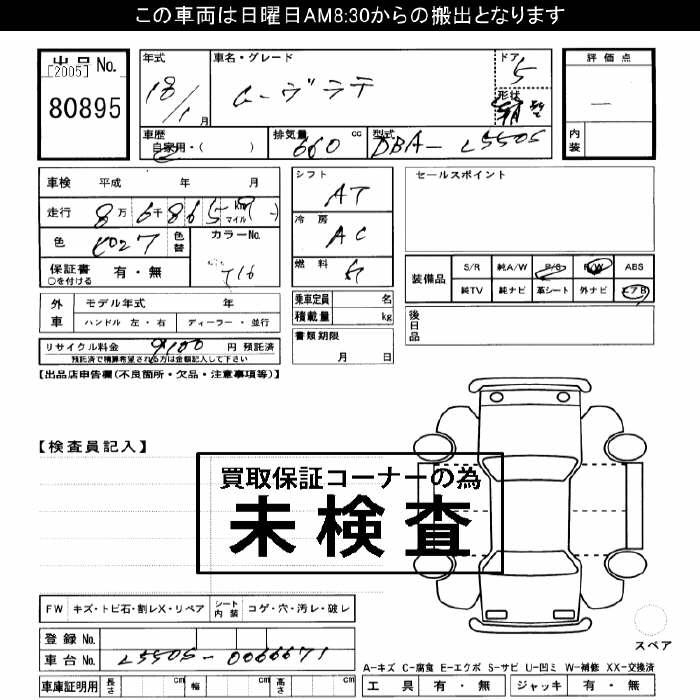 この車両は日曜日AM8:30からの搬出となります
出品 No.
[2005]
80895
年式
18/1月
車名・グレード
ムーヴラテ
ドア
5
形状
評価点
内装
車歴
自家用・( )
排気量
660 cc
型式
DBA- L550S
車検 平成 年 月
走行 8万 6千 865 km マイル
色
色替
カラーNo.
T16
保証書
○を付ける
有・無
シフト
AT
冷房
AC
燃料
ガ
セールスポイント
装備品
S/R 純A/W P/S P/W ABS
純TV 純ナビ 革シート 外ナビ エアB
外車
モデル年式 年
ハンドル 左・右 ディーラー・並行
乗車定員 名
積載量 kg
後日品
リサイクル料金 9100 円 預託済
預託済で精算希望される方は金額記入して下さい
書類期限
月 日
【出品店申告欄(不良箇所・欠品・注意事項等)】
【検査員記入】
買取保証コーナーの為
未検査
FW キズ・トビ石・割レX・リペア シート内装 コゲ・穴・汚レ・破レ
登録 No.
車台 No. L550S-0066671
スペア
A-キズ C-腐食 E-エクボ S-サビ U-凹ミ W-補修 XX-交換済
車庫証明用 長さ cm 幅 cm 高さ cm
工具 有・無 ジャッキ 有・無